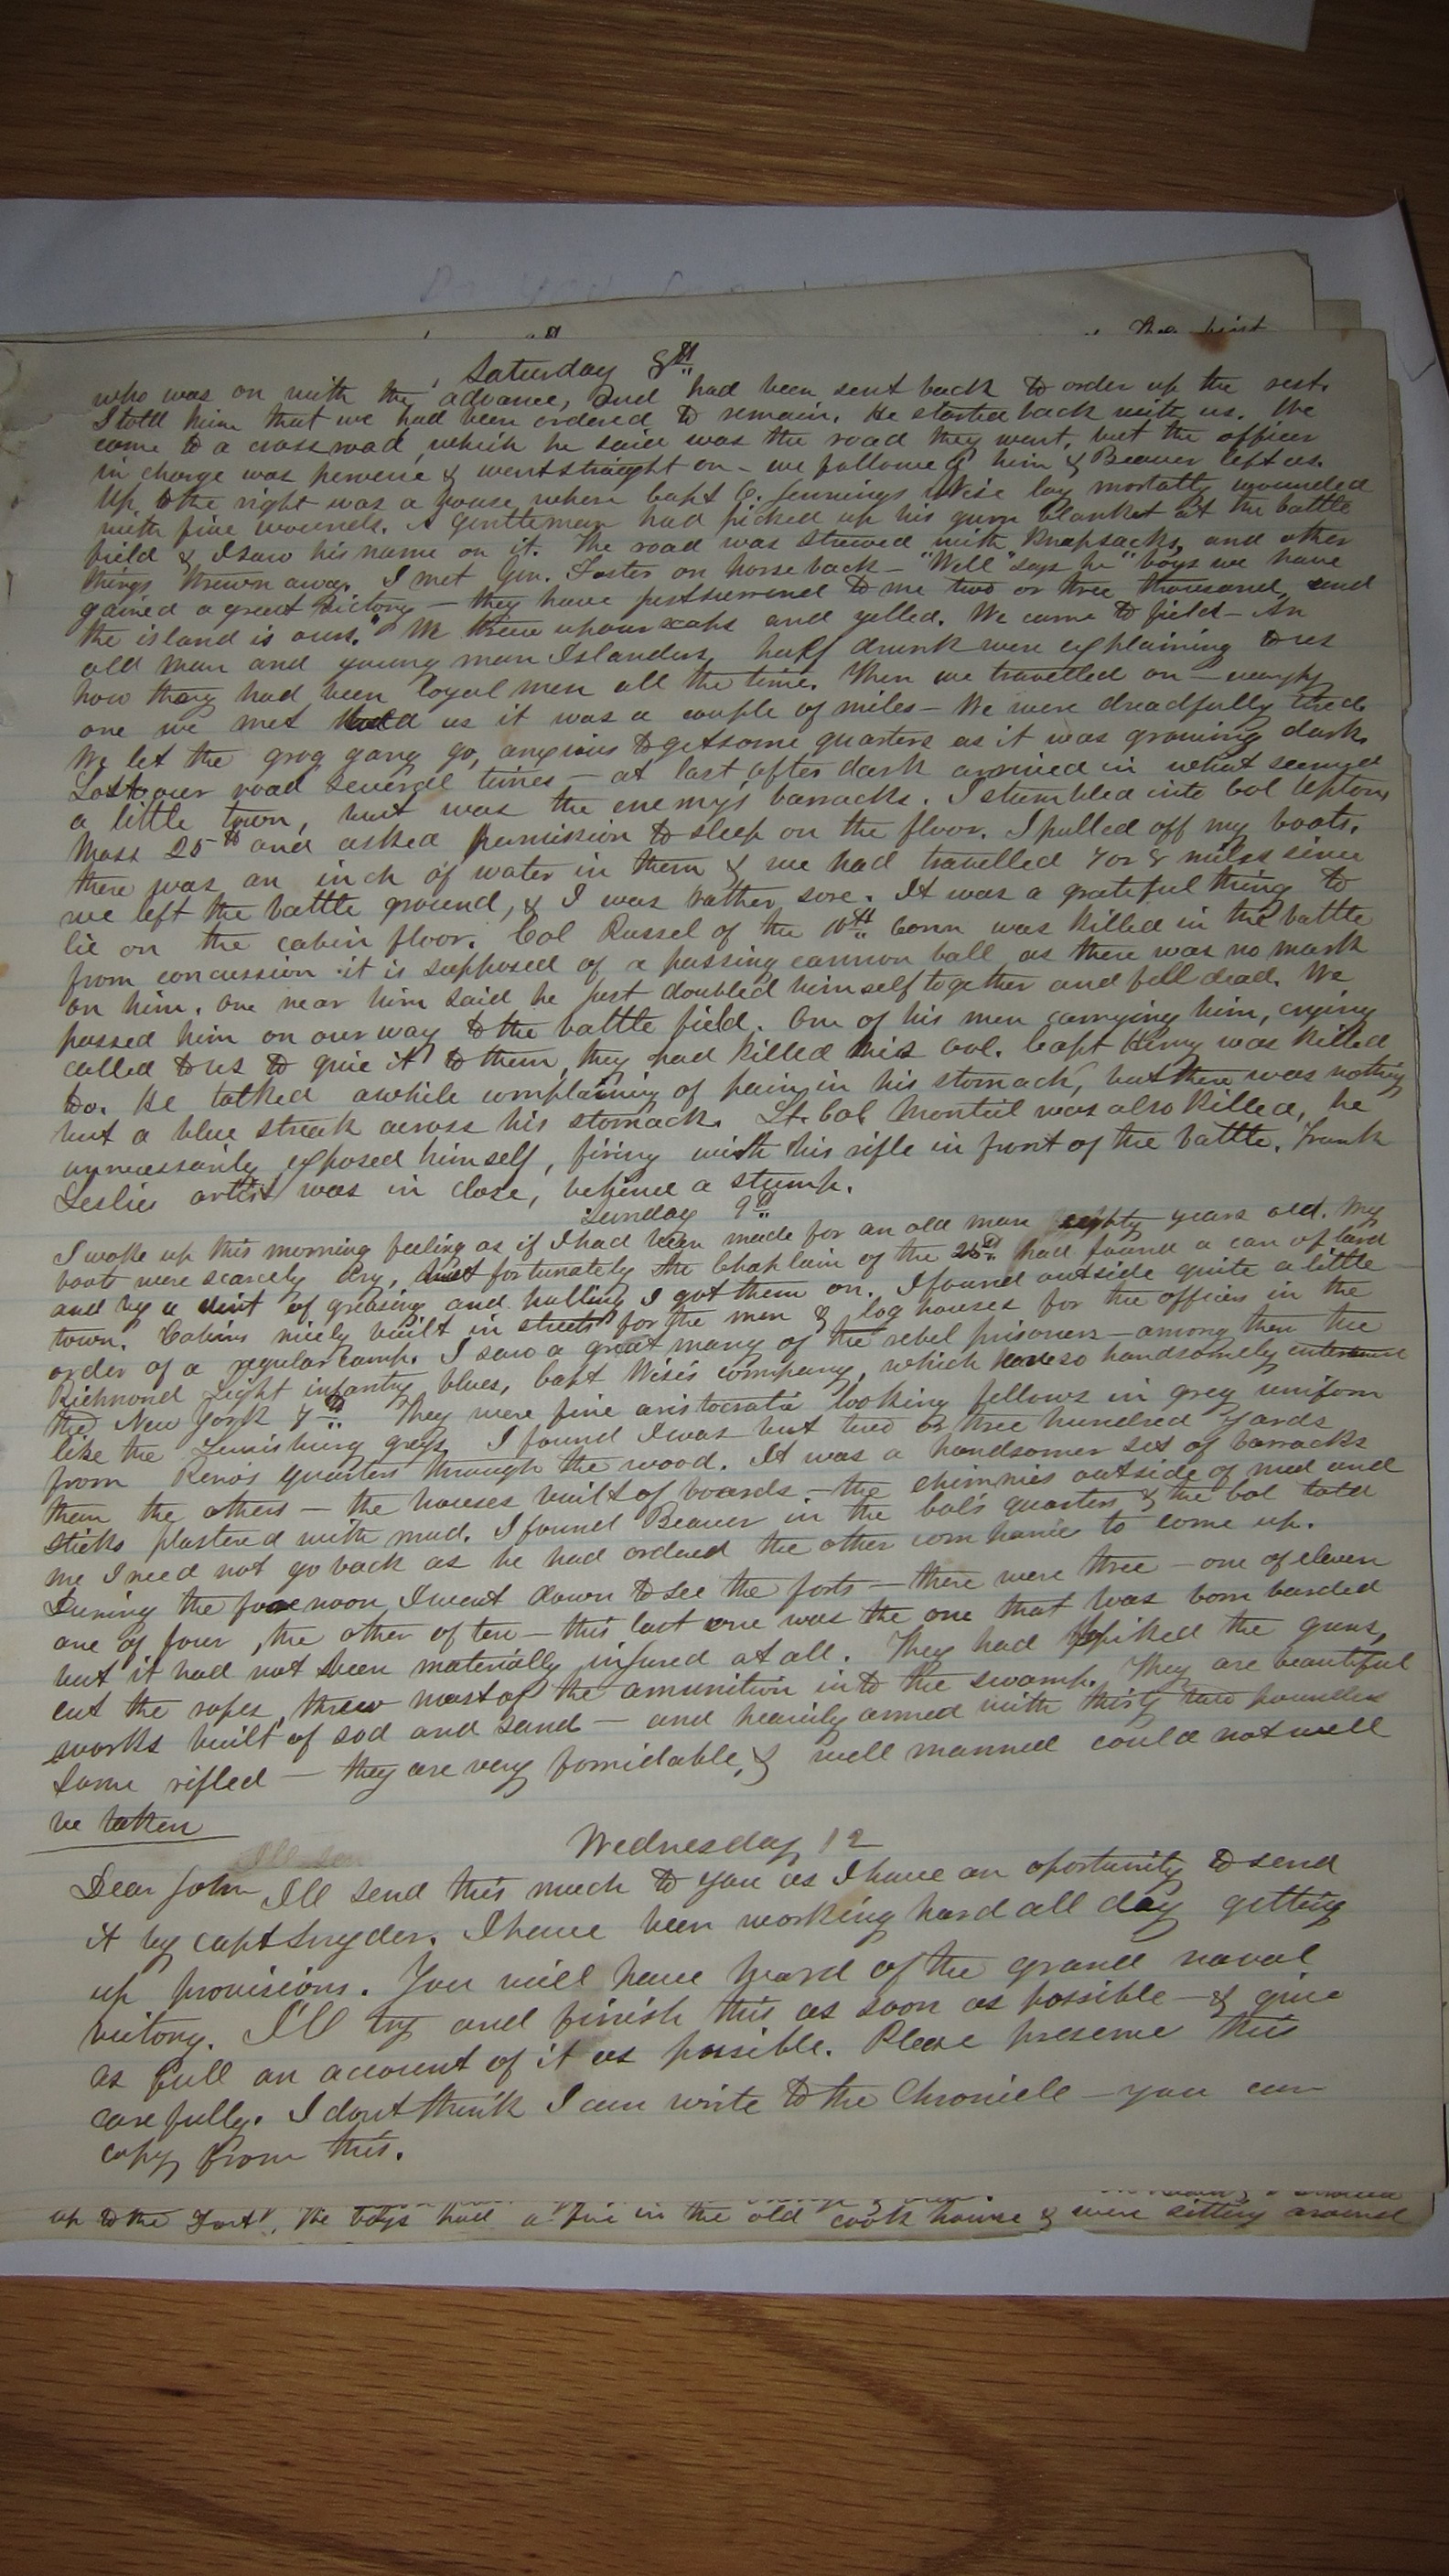 The first
Saturday 8th
who was on with the advance, and had been sent back to order up the rest.
I told him that we had been ordered to remain. He started back with us. We
came to a cross road which he said was the road they went, but the officer
in charge was perverse & went straight on – we followed him & Beaver left us.
Up to the right was a house where Capt O. Jennings Wise lay mortally wounded
with five wounds. A gentleman had picked up his gum blanket at the battle
field & I saw his name on it. The road was strewed with knapsacks, and other
things thrown away. I met Gen. Foster on horse back – "Well" says he "boys we have
gained a great victory – they have just surrend to me two or tree thousand and
the island is ours." We threw up our caps and yelled. We came to field – An
old man and young man Islanders half drunk were explaining to us
how they had been loyal men all the time. Then we travelled on –
one we met told us it was a couple of miles – We were dreadfully tired.
We let the grog gang go, anxious to get some quarters as it was growing dark.
Lost our road several times – at last after dark arrived in what seemed
a little town, but was the enemy's barracks. I stumbled into Col Uptons
Mass 25th and asked permission to sleep on the floor. I pulled off my boots.
there was an inch of water in them & we had travelled 7 or 8 miles since
we left the battle ground, & I was rather sore. It was a grateful thing to
lie on the cabin floor. Col Russel of the 10th Conn was killed in the battle
from concussion it is supposed of a passing cannon ball as there was no mark
on him. One near him said he just doubled himself together and fell dead. We
passed him on our way to the battle field. One of his men carrying him, crying
called to us to give it to them, they had killed his Col. Capt Henry was killed
too. He talked awhile complaining of pain in his stomach, but there was nothing
but a blue streak across his stomach. Lt. Col Monteil was also killed, he
unnecessarily exposed himself, firing with his rifle in front of the battle. Frank
Leslies artist was in close, behind a stump.
Sunday 9th
I woke up this morning feeling as if I had been made for an old man eighty years old. My
boots were scarcely dry, but fortunately the Chaplain of the 25th had found a can of lard
and by a dint of greasing and pulling I got them on. I found outside quite a little
town. Cabins nicely built in streets for the men & log houses for the officers in the
order of a regular camp. I saw a great many of the rebel prisoners – among them the
Richmond Light infantry blues, Capt Wise's company, which have so handsomely
the New York 7th. They were fine aristocratic looking fellows in grey uniform
like the Lewisburg greys. I found I was but two or three hundred yards
from Reno's quarters through the wood. It was a handsomer set of barracks
than the others – the houses built of boards – the chimnies outside of mud and
sticks plastered with mud. I found Beaver in the Col's quarters & the Col told
me I need not go back as he had ordered the other companies to come up.
During the forenoon I went down to see the forts – there were three – one of eleven
one of four, the other of ten – this last one was the one that was bombarded
but it had not been materially injured at all. They had spiked the guns,
cut the ropes, threw most of the amunition into the swamp. They are beautiful
works built of sod and sand – and heavily armed with thirty two pounders
some rifled – they are very formidable, & well manned could not well
be taken
Wednesday 12
Dear John I'll send this much to you as I have an oportunity to send
it by capt Snyder. I have been working hard all day getting
up provisions. You will have heard of the grand naval
victory. I'll try and finish this as soon as possible – & give
as full an account of it as possible. Please preserve this
carefully. I dont think I can write to the Chronicle – you can
copy from this.
up to the Fort. The boys had a fire in the old cook house & were sitting around